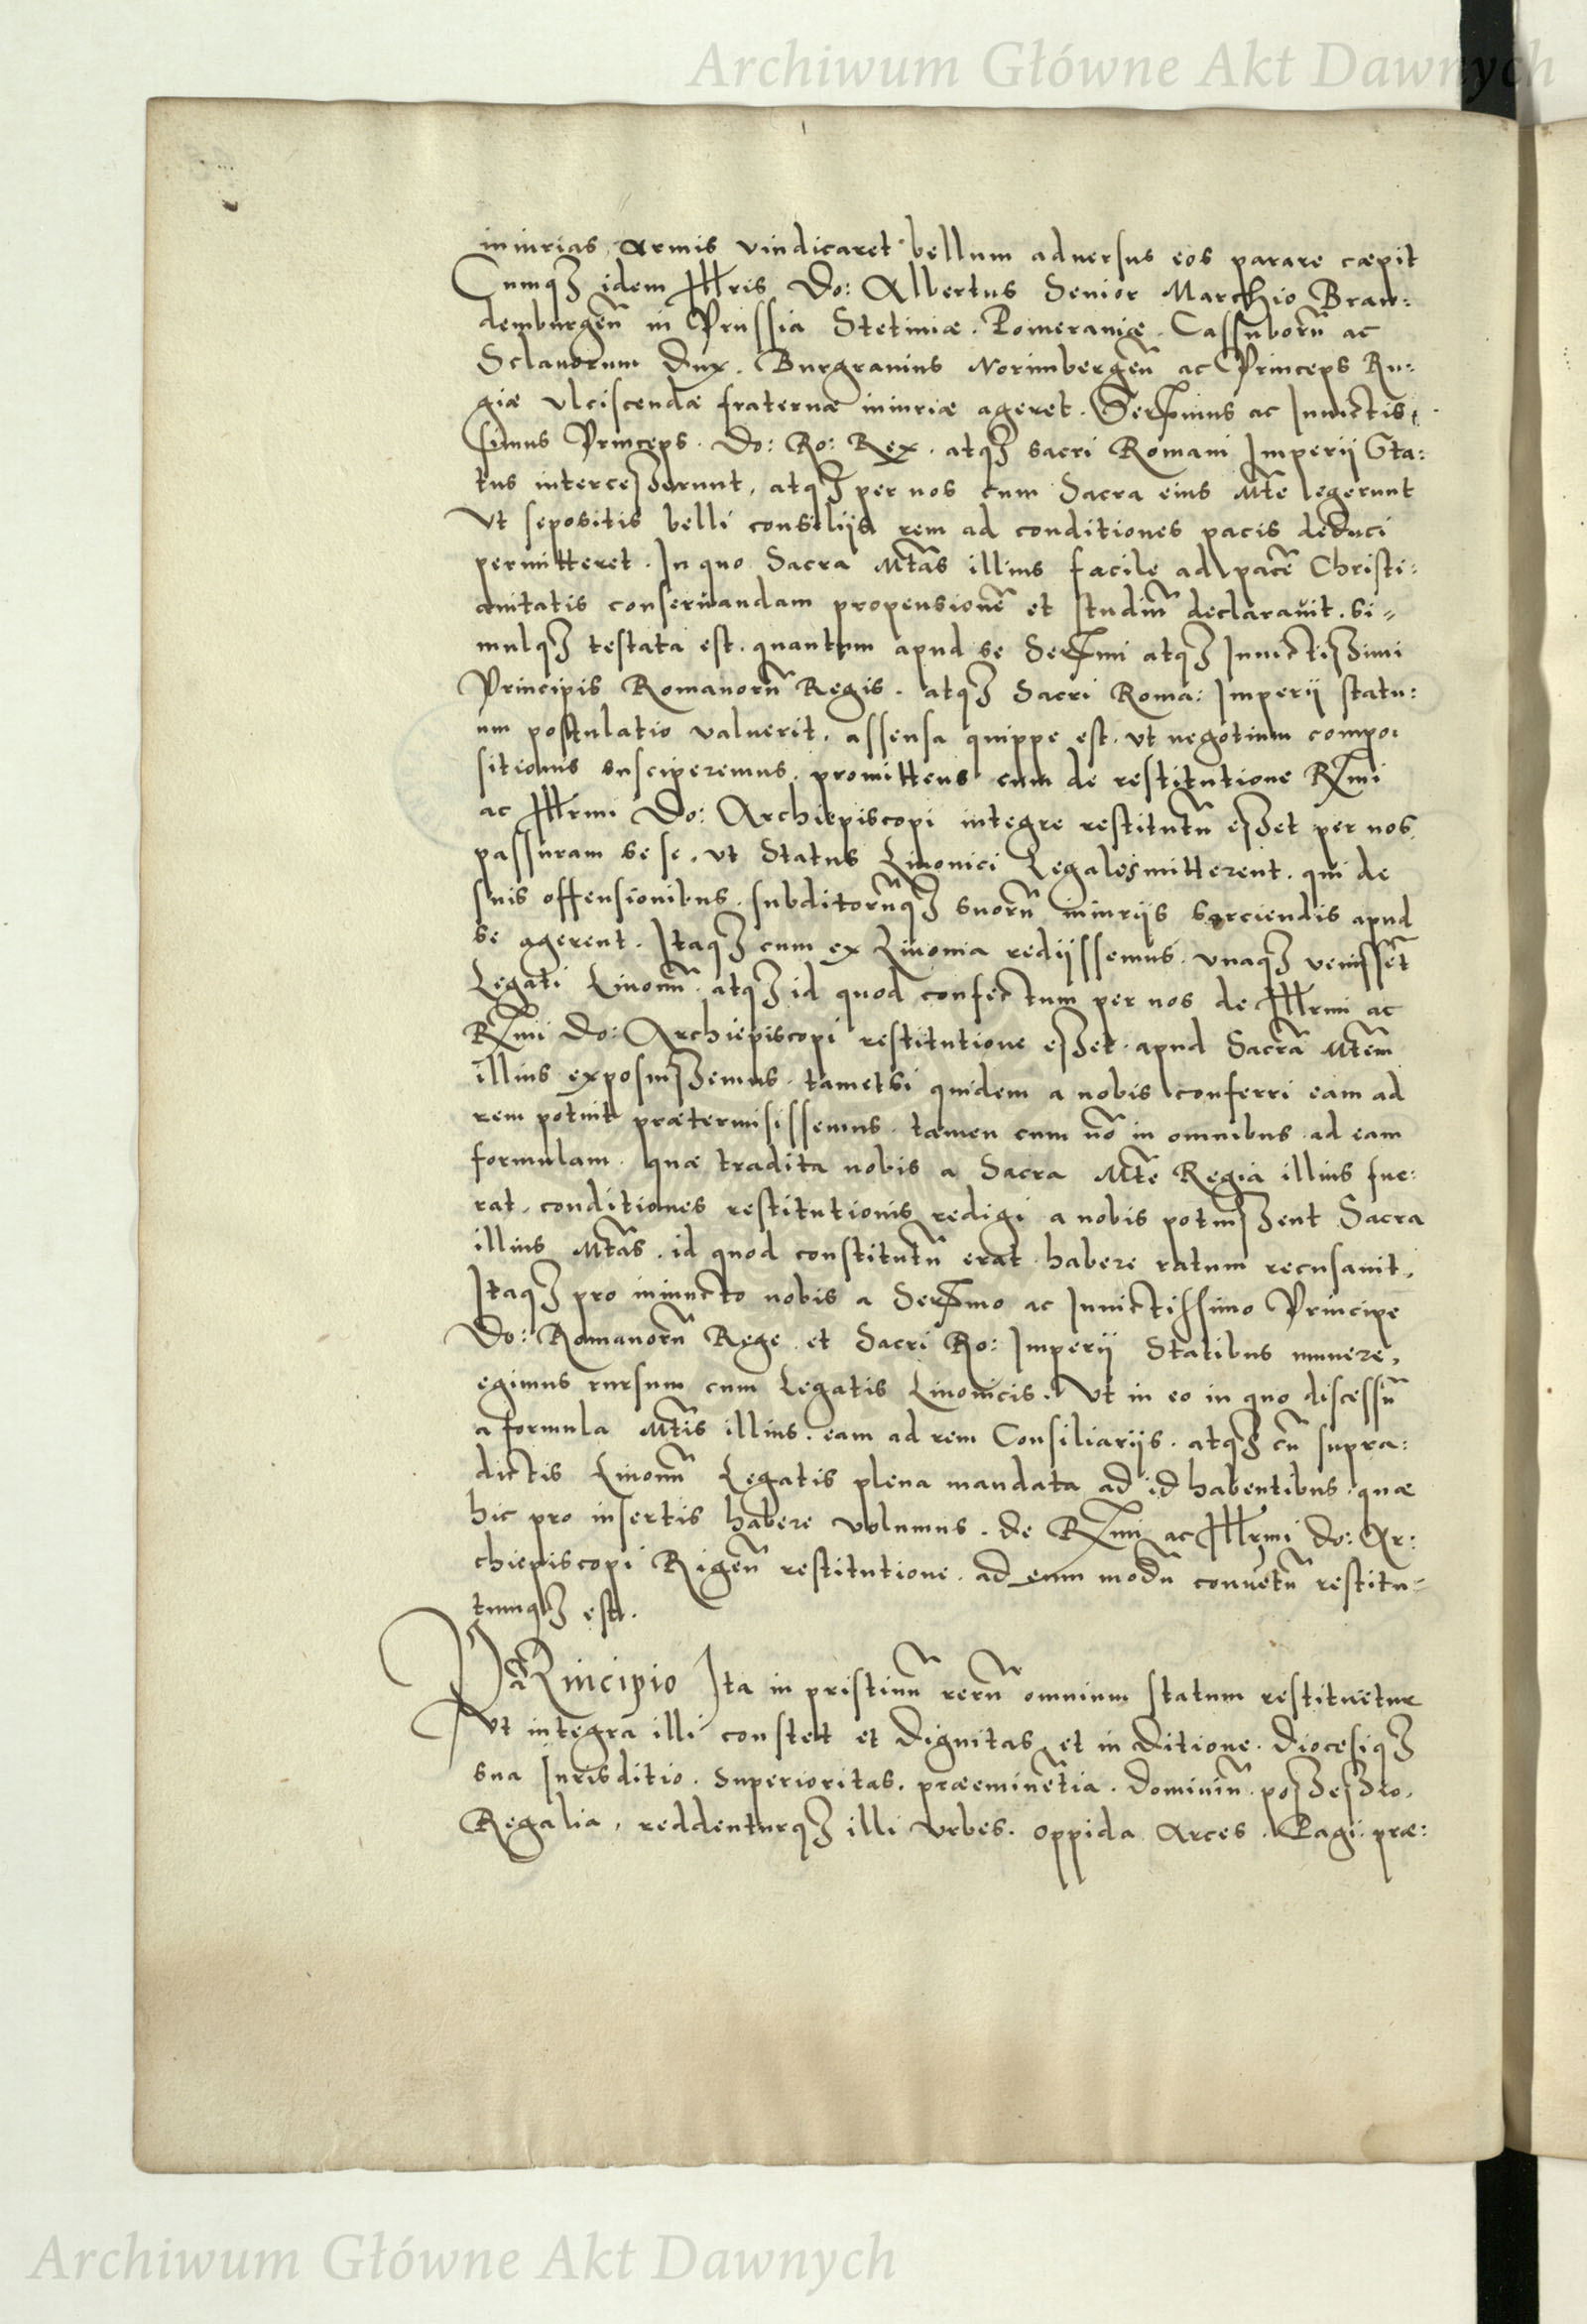 Archiwum Główne Akt Dawnych
iniurias armis vindicaret bellum aduersus eos parare cæpit
Cumq₃ idem Illris Do: Albertus Senior Marchio Bran:
demburgen̄ in Prussia Stetiniæ. Pomeraniæ. Cassuborū ac
Sclauorum Dux. Burgrauius Norimbergen̄ ac Princeps Ru:
giæ vlciscendæ fraternæ iniuriæ ageret. Serḿus ac Inuictis:
simus Princeps. Do: Ro: Rex. atq₃ sacri Romani Imperij Sta:
tus intercesserunt, atq₃ per nos cum Sacra eius Mte legerunt
Vt sepositis belli consilijs rem ad conditiones pacis deduci
permitteret. In quo Sacra Mtas illius facile ad pacē Christi:
anitatis conseruandam propensionē et studiū declarauit. Si=
mulq₃ testata est. quantum apud se Sermi atq₃ Inuictissimi
Principis Romanorū Regis. atq₃ Sacri Roma: Imperij statu:
um postulatio valuerit. assensa quippe est. vt negotium compo:
sitionis susciperemus. promittens cum de restitutione Rmi
ac Illrmi Do: Archiepiscopi integre restitutū esset per nos.
passuram sese. vt Status Liuonici Legatos mitterent. qui de
suis offensionibus. subditorūq₃ suorū iniurijs sarciendis apud
se agerent. Itaq₃ cum ex Liuonia redijssemus. vnaq₃ venissēt
Legati Liuonū. atq₃ id quod confectum per nos de Illrmi ac
Rmi Do: Archiepiscopi restitutione esset. apud Sacrā Mtem
illius exposuissemus. tametsi quidem a nobis conferri eam ad
rem potuit prætermisissemus. tamen cum nō in omnibus ad eam
formulam. quæ tradita nobis a Sacra Mte Regia illius fue:
rat. conditiones restitutionis redigi a nobis potuissent Sacra
illius Mtas. id quod constitutū erat habere ratum recusauit.
Itaq₃ pro iniuncto nobis a Sermo ac Inuictissimo Principe
Do: Romanorū Rege et Sacri Ro: Imperij Statibus munere,
egimus rursum cum Legatis Liuonicis. Vt in eo in quo discessū
a formula Mtis illius. eam ad rem Consiliarijs. atq₃ cū supra:
dictis Liuonū Legatis plena mandata ad id habentibus. quæ
hic pro insertis habere volumus. de Rmi ac Illrmi Do: Ar:
chiepiscopi Rigen̄ restitutione. ad eum modū conuētū restitu=
tumq₃ est.
PRincipio Ita in pristinū rerū omnium statum restituetur
Vt integra illi constet et Dignitas et in Ditione. Diocesiq₃
sua Iurisditio. Superioritas. præeminētia. Dominiū. possessio.
Regalia, reddenturq₃ illi Vrbes. Oppida Arces. Pagi. præ:
Archiwum Główne Akt Dawnych